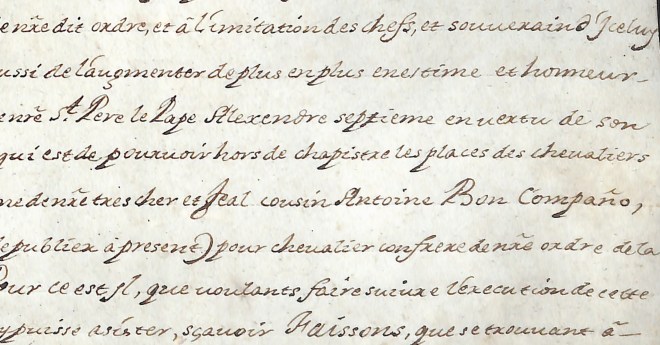 enr̃e dit ordre, et à l'imitation des chefs, et souverain d'Iceluy
ussi de l'augmenter de plus en plus en estime et honneur-
enr̃e S.t Pere le Pape Alexendre septieme en vertu de son
qui est de pourvoir hors de chapistre les places des chevaliers
ne de nr̃e tres cher et feal cousin Antoine Bon Compaño,
e publier à present) pour chevalier confrere de nr̃e ordre de la
Pour ce est Il, que voulants faire suivre l'execution de cette
y puisse asister, sçavoir Faissons, que se trouvant à-